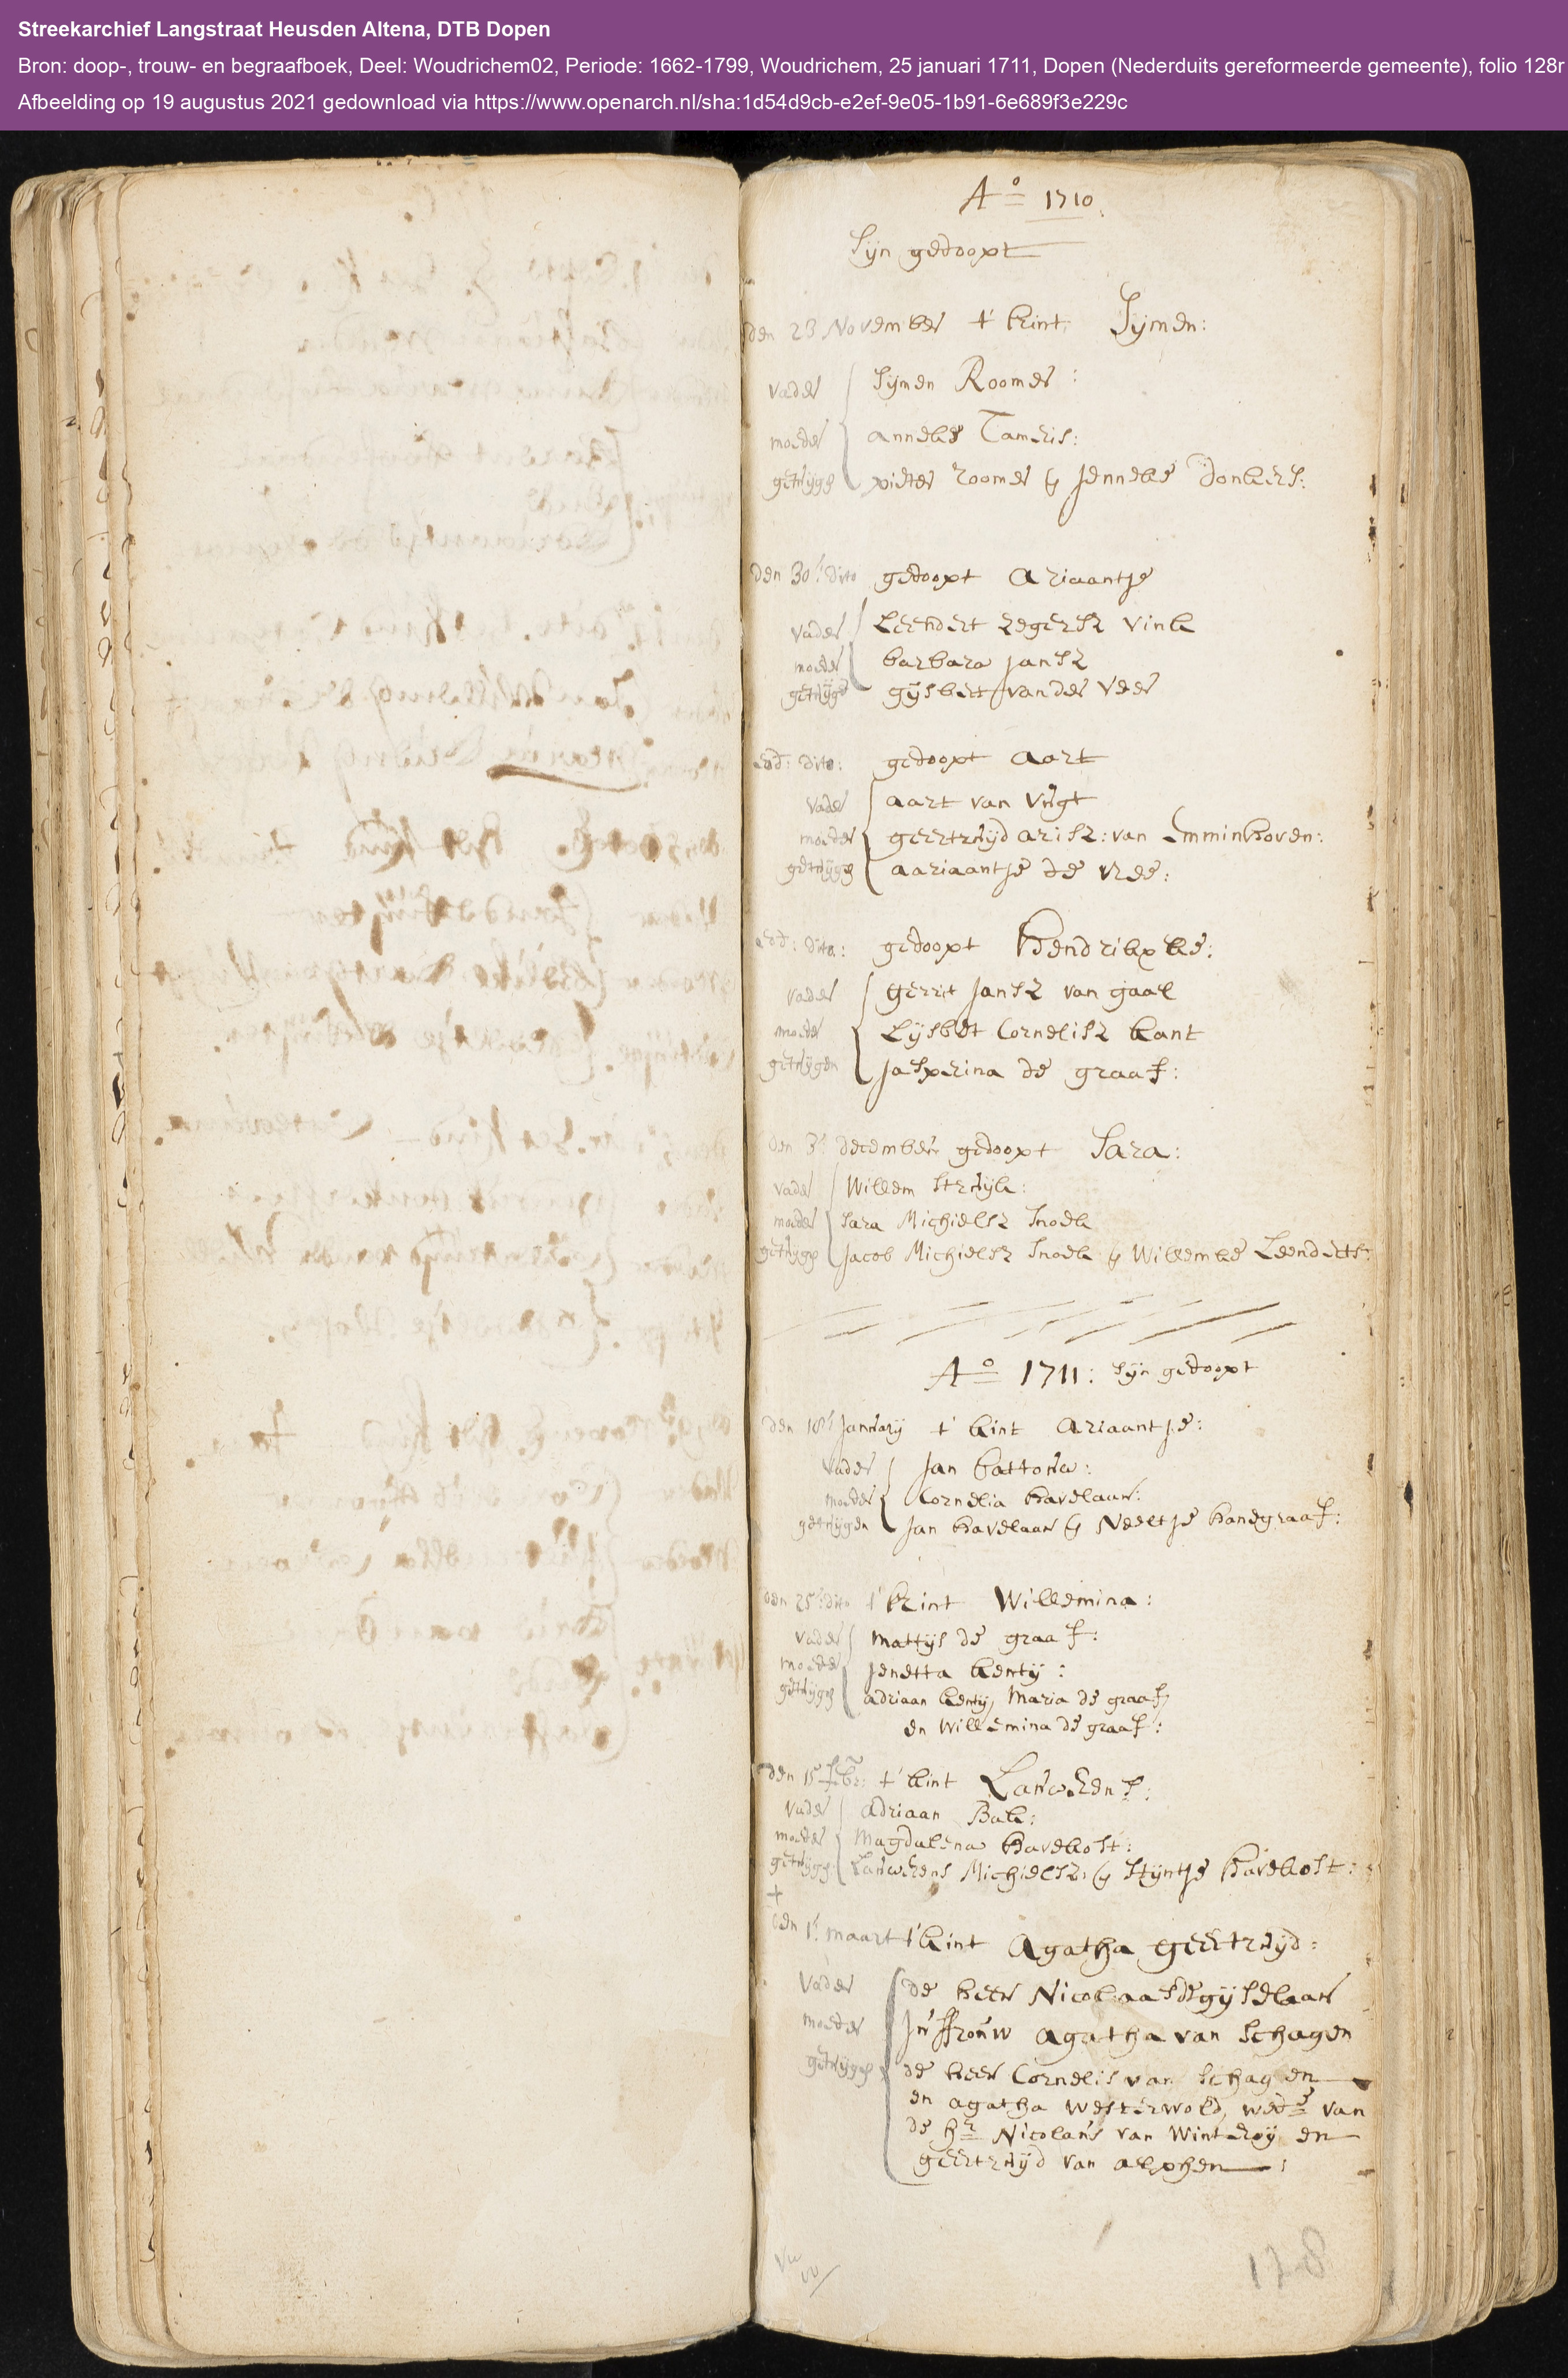 Streekarchief Langstraat Heusden Altena, DTB Dopen
Bron: doop-, trouw- en begraafboek, Deel: Woudrichem02, Periode: 1662-1799, Woudrichem, 25 januari 1711, Dopen (Nederduits gereformeerde gemeente), folio 128r
Afbeelding op 19 augustus 2021 gedownload via https://www.openarch.nl/sha:1d54d9cb-e2ef-9e05-1b91-6e689f3e229c
A° 1710
Sijn gedoopt
den 23 November t' kint Sijmen:
vader Sijmen Roomer:
moeder anneke Tameris:
getuijge pieter roomer en Jenneke Donkers:
den 30: dito gedoopt Ariaantje
vader Leendert Zegersz Vink
moeder barbara Jansz
getuijge gijsbert van der Veer
eod: dito: gedoopt Aart
vader aart van Vugt
moeder geertruijd arisz: van Emminkhoven:
getuijge aariaantje de vree:
eod: dito: gedoopt Hendrikxke:
vader gerrit Jansz van gaal
moeder Lijsbet Cornelisz kant
getuijgen Jasperina de graaf:
den 3: december gedoopt Sara:
vader Willem Struijk:
moeder Sara Michielsz Snoek
getuijge Jacob Michielsz Snoek en Willemke Leenderts:
A° 1711: Sijn gedoopt
den 18: Januarij t' kint Ariaantje:
vader Jan kattouw:
moeder Cornelia havelaar:
getuijgen Jan havelaar en Neeltje handgraaf:
den 25: dito t' kint Willemina:
vader mattijs de graaf:
moeder Jenetta kentij:
getuijge adriaan kentij, Maria de graaf,
en Willemina de graaf:
den 15 febr: t' kint Lauwrens:
vader adriaan Bak:
moeder Magdalena havekost:
getuijge Lauwrens Michielsz: en Stijntje Havekost:
+
den 1: maart t' kint Agatha geertruijd:
vader de heer Nicolaas de gijselaar
moeder Juffrouw agatha van Schagen
getuijge de heer Cornelis van Schagen
en agatha Westerwold, wede van
de hr Nicolaus van Winteroij en
geertruijd van alphen:
128